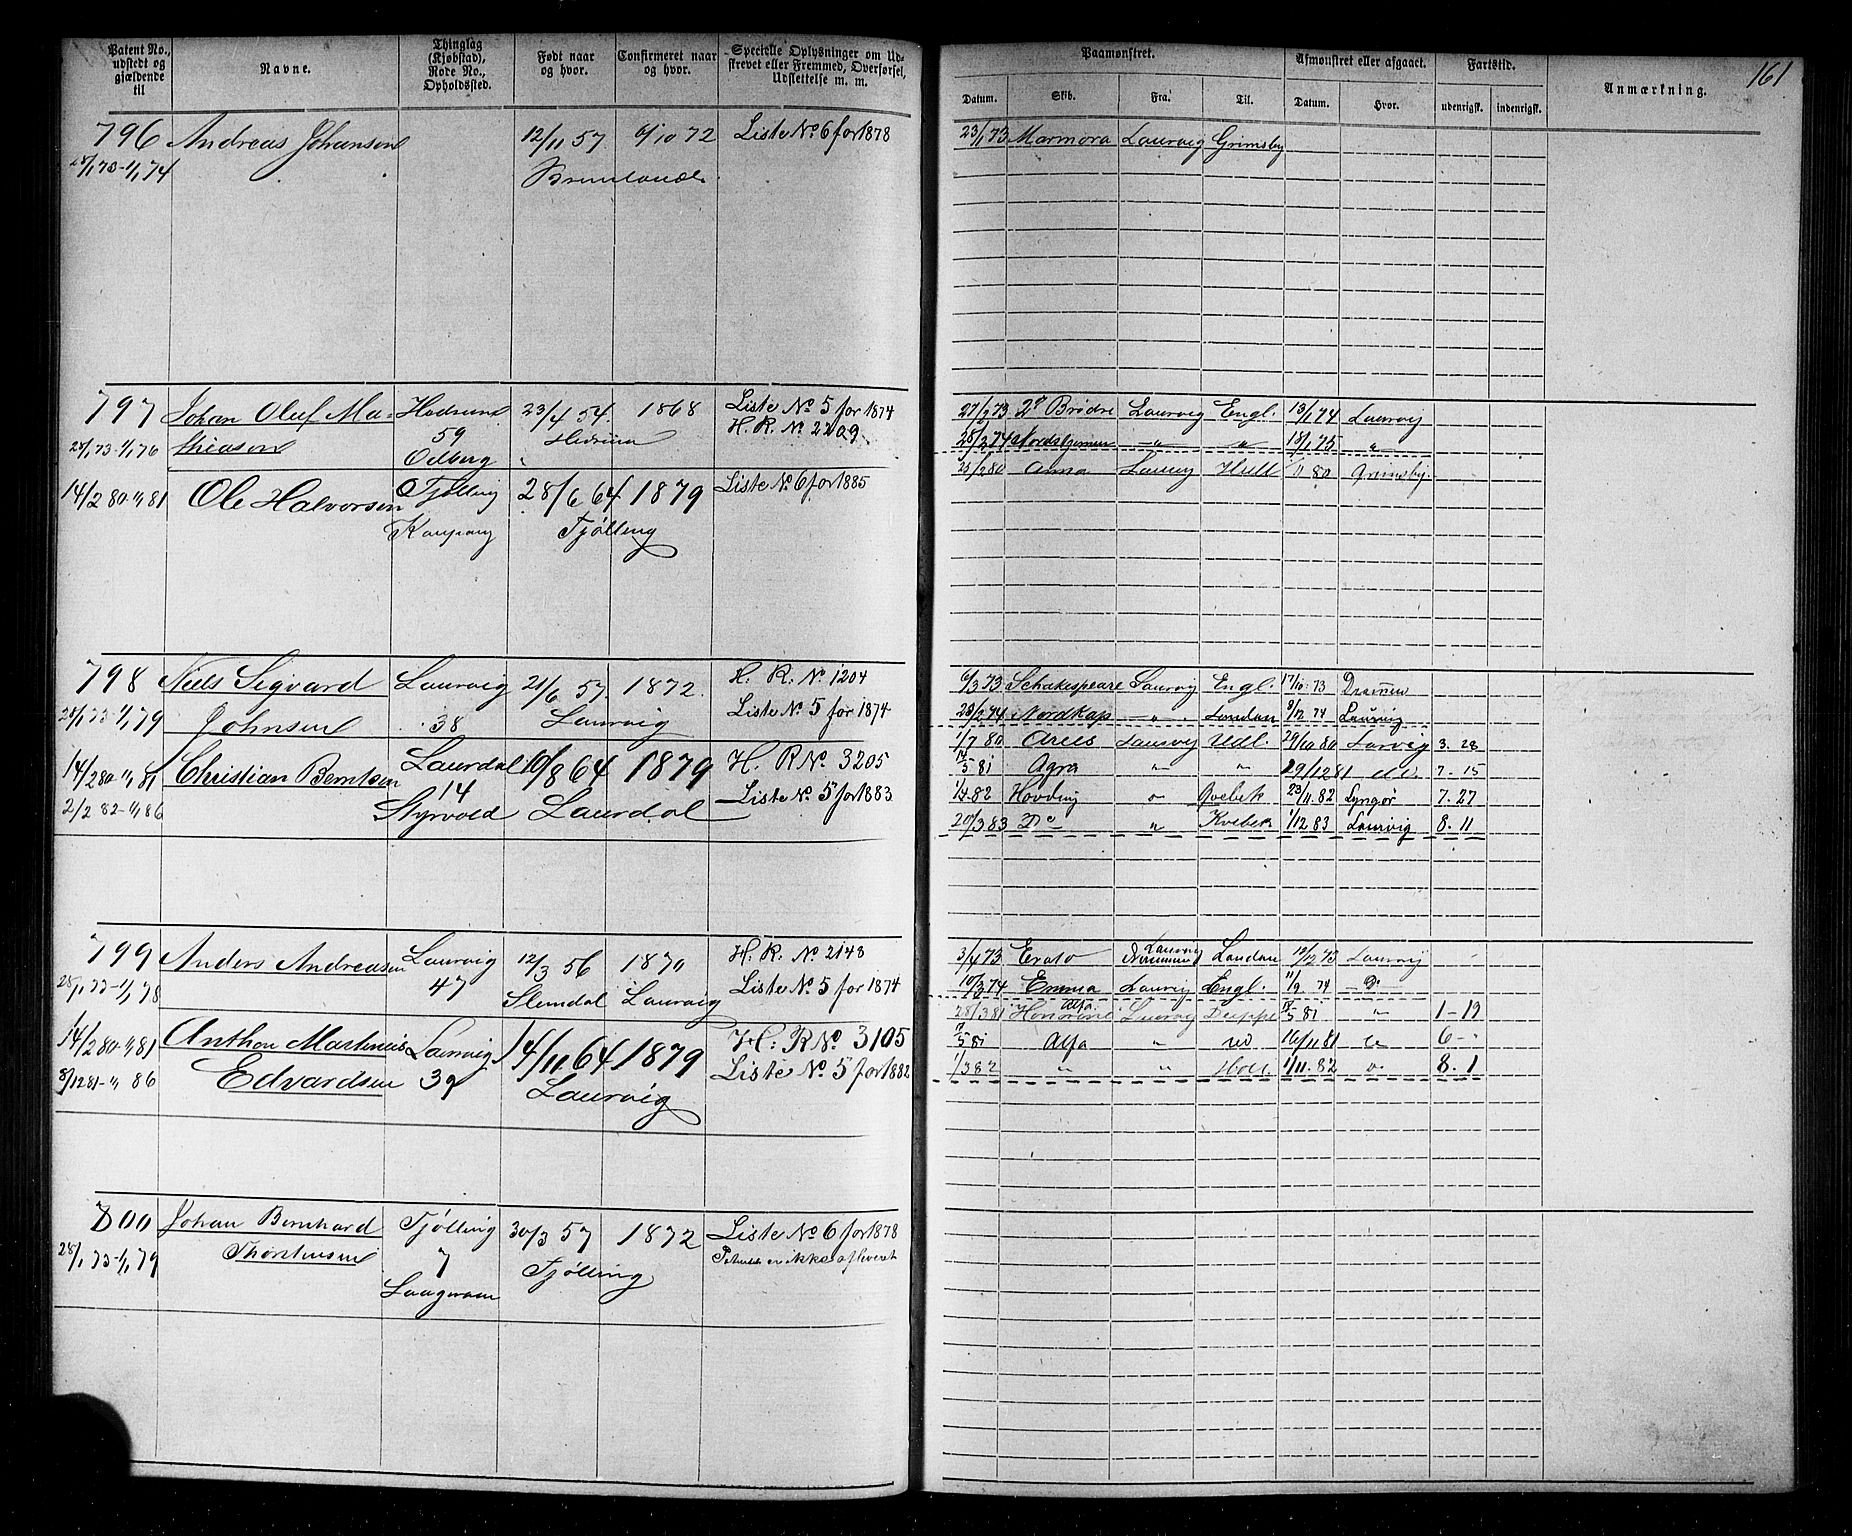 Patent No., udstedt og gjældende til
Navne.
Thinglag (Kjøbstad), Rode No., Opholdssted.
Født naar og hvor.
Confirmeret naar og hvor.
Specielle Oplysninger om Udskrevet eller Fremmed, Overførsel, Udslettelse m. m.
Paamønstret.
Afmønstret eller afgaaet.
Fartstid.
Anmærkning.
161
Datum.
Skib.
Fra.
Til.
Datum.
Hvor.
udenrigsk.
indenrigsk.
796 Andreas Johansen 12/11 57 6/10 72 Liste No 6 for 1878
23/1 73 Marmora Laurvig Grimsby
28/1 73-1/1 74
797 Johan Oluf Ma- Hedrum 23/4 54 1868 Liste No 5 for 1874
27/2 73 2de Brødre Laurvig Engl. 13/1 74 Laurvig
28/1 73-1/1 76 thiason 59 Hedrum H. R. No 2209
25/2 74 -"- " 18/1 75 "
Odberg
23/2 80 Anna Laurvig Hull 11 80 Grimsby
14/2 80-1/1 81 Ole Halvorsen Tjølling 28/6 64 1879 Liste No 6 for 1885
Kaupang Tjølling
798 Niels Sigvard Laurvig 21/6 57 1872. H. R. No 1204
6/3 73 Schakespeare Laurvig Engl. 17/10 73 Drammen
28/1 73-1/1 79 Johnsen 38 Laurvig Liste No 5 for 1874
28/2 74 Nordkap -"- London 9/12 74 Laurvig
1/7 80 Laurvig Udl. 29/10 80 Larvig 3. 28
14/2 80-1/1 81 Christian Berntsen Laurdal 10/8 64 1879 H. R No 3205
5 81 Agra " " 29/12 81 7-15
2/2 82-1/1 86 14 Styrvold Laurdal Liste No 5 for 1883
1/4 82 Hovding Qvebek 23/11 82 Lyngør 7. 27
20/3 83 Do " Kvebek 1/12 83 Laurvig 8. 11
799 Anders Andreasen Laurvig 12/3 56 1870 H. R. No 2148
3/4 73 Erato Laurvig London 12/12 73 Laurvig
28/1 73-1/1 78 47 Slemdal Laurvig Liste No 5 for 1874
10/3 74 Emma Laurvig Engl. 11/9 74 -Do-
28/3 81 Alfa Laurvig Dieppe 5 81 " 1-19
14/2 80-1/1 81 Anthon Martinius Laurvig 14/11 64 1879 H. R No 3105
5 81 Alfa " 16/11 81 6-
8/12 81-1/1 86 Edvardsen 39 Laurvig Liste No 5 for 1882
1/3 82 " " Hull 1/11. 82 8. 1
800 Johan Bernhard Tjølling 30/3 57 1872 Liste No 6 for 1878
28/1 73-1/1 79 Thorstensen 7 Tjølling Patentet er ikke afleveret